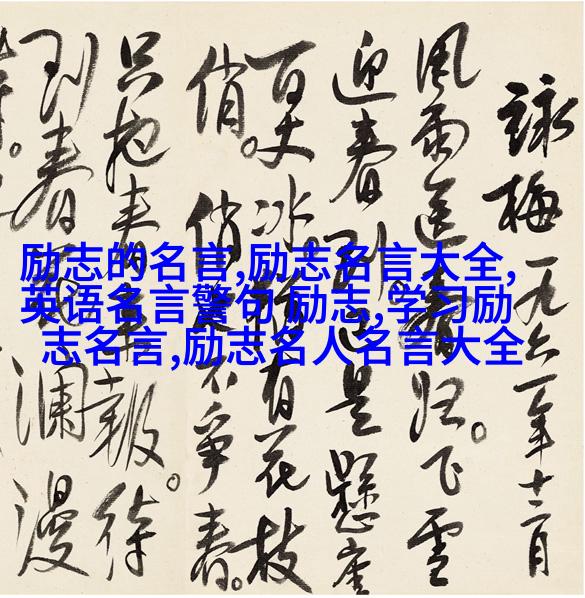 詠梅 一九六一年十二月
風雨送春归。飞雪
迎春到已是懸崖
百丈冰犹有花枝
俏。俏也不争春。
只把春来報。待
到春花瀾漫
励志的名言,励志名言大全,
英语名言警句 励志,学习励
志名言,励志名人名言大全